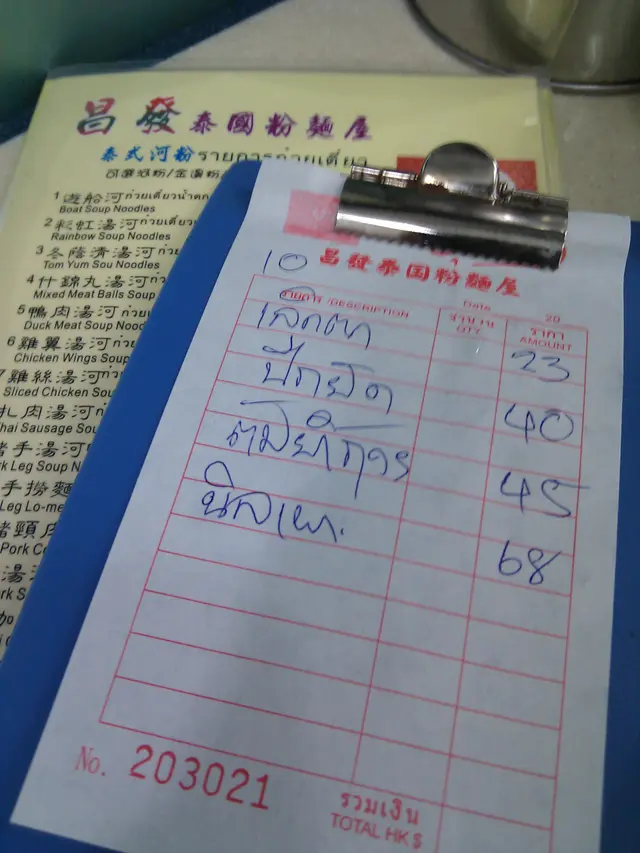 昌發泰國粉麵屋
泰式河粉รายการก๋วยเตี๋ยว
1 遊船河ก๋วยเตี๋ยวน้ำตก
Boat Soup Noodles
2 彩虹湯河ก๋วยเตี๋ยว
Rainbow Soup Noodles
3 冬蔭清湯河
Tom Yum Sou Noodles
4 什錦丸湯河
Mixed Meat Balls Soup
5 鴨肉湯河
Duck Meat Soup Nood
6 雞翼湯河
Chicken Wings Soup
7 雞絲湯河
Sliced Chicken Sou
扎肉湯河
hai Sausage Sou
豬手湯河
rk Leg Soup N
手撈麵
Leg Lo-me
豬頸肉
Pork
湯河
10
昌發泰国粉麵屋
Date 20
รายการ /DESCRIPTION
จำนวน QTY
ราคา AMOUNT
23
ปีกยัด 40
45
68
No. 203021
รวมเงิน
TOTAL HK$